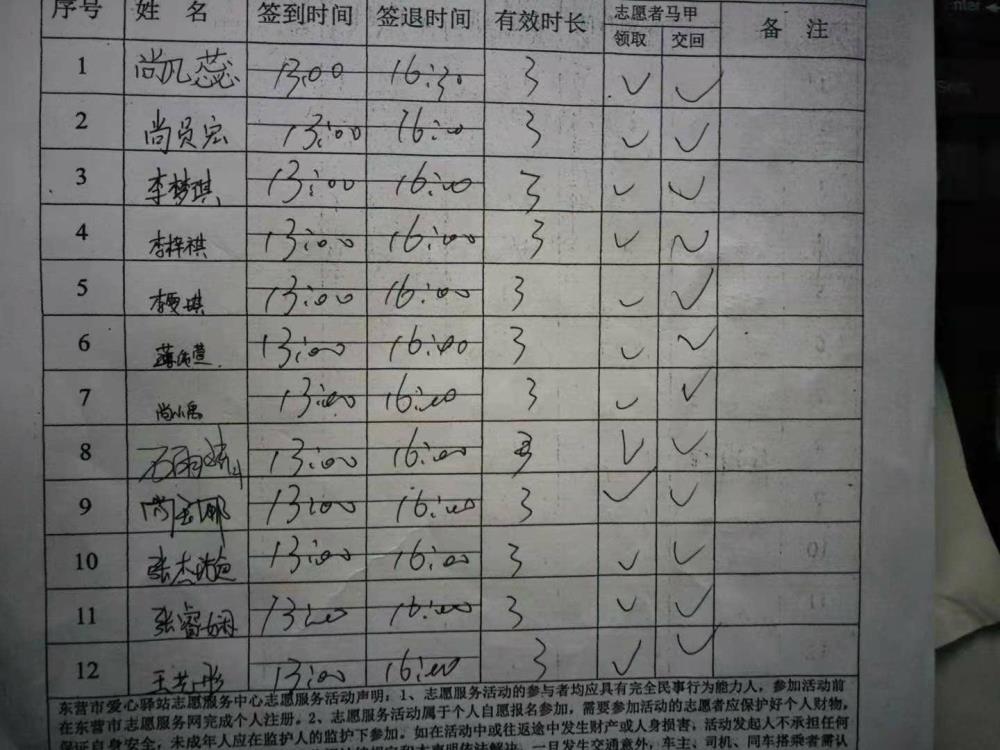 序号 姓 名 签到时间 签退时间 有效时长 志愿者马甲 备 注
领取 交回
1 尚凡蕊 13:00 16:30 3 ✓ ✓
2 尚员宏 13:00 16:00 3 ✓ ✓
3 李梦琪 13:00 16:00 3 ✓ ✓
4 李梓祺 13:00 16:00 3 ✓ ✓
5 13:00 16:00 3 ✓ ✓
6 13:00 16:00 3 ✓ ✓
7 尚小禹 13:00 16:00 3 ✓ ✓
8 13:00 16:00 3 ✓ ✓
9 13:00 16:00 3 ✓ ✓
10 张杰 13:00 16:00 3 ✓ ✓
11 张睿娴 13:00 16:00 3 ✓ ✓
12 王艺彤 13:00 16:00 3 ✓ ✓
东营市爱心驿站志愿服务中心志愿服务活动声明：1、志愿服务活动的参与者均应具有完全民事行为能力人，参加活动前
在东营市志愿服务网完成个人注册。2、志愿服务活动属于个人自愿报名参加，需要参加活动的志愿者应保护好个人财物，
保证自身安全，未成年人应在监护人的监护下参加。如在活动中或往返途中发生财产或人身损害，活动发起人不承担任何
本声明依法解决，一旦发生交通意外，车主、司机、同车搭乘者需认